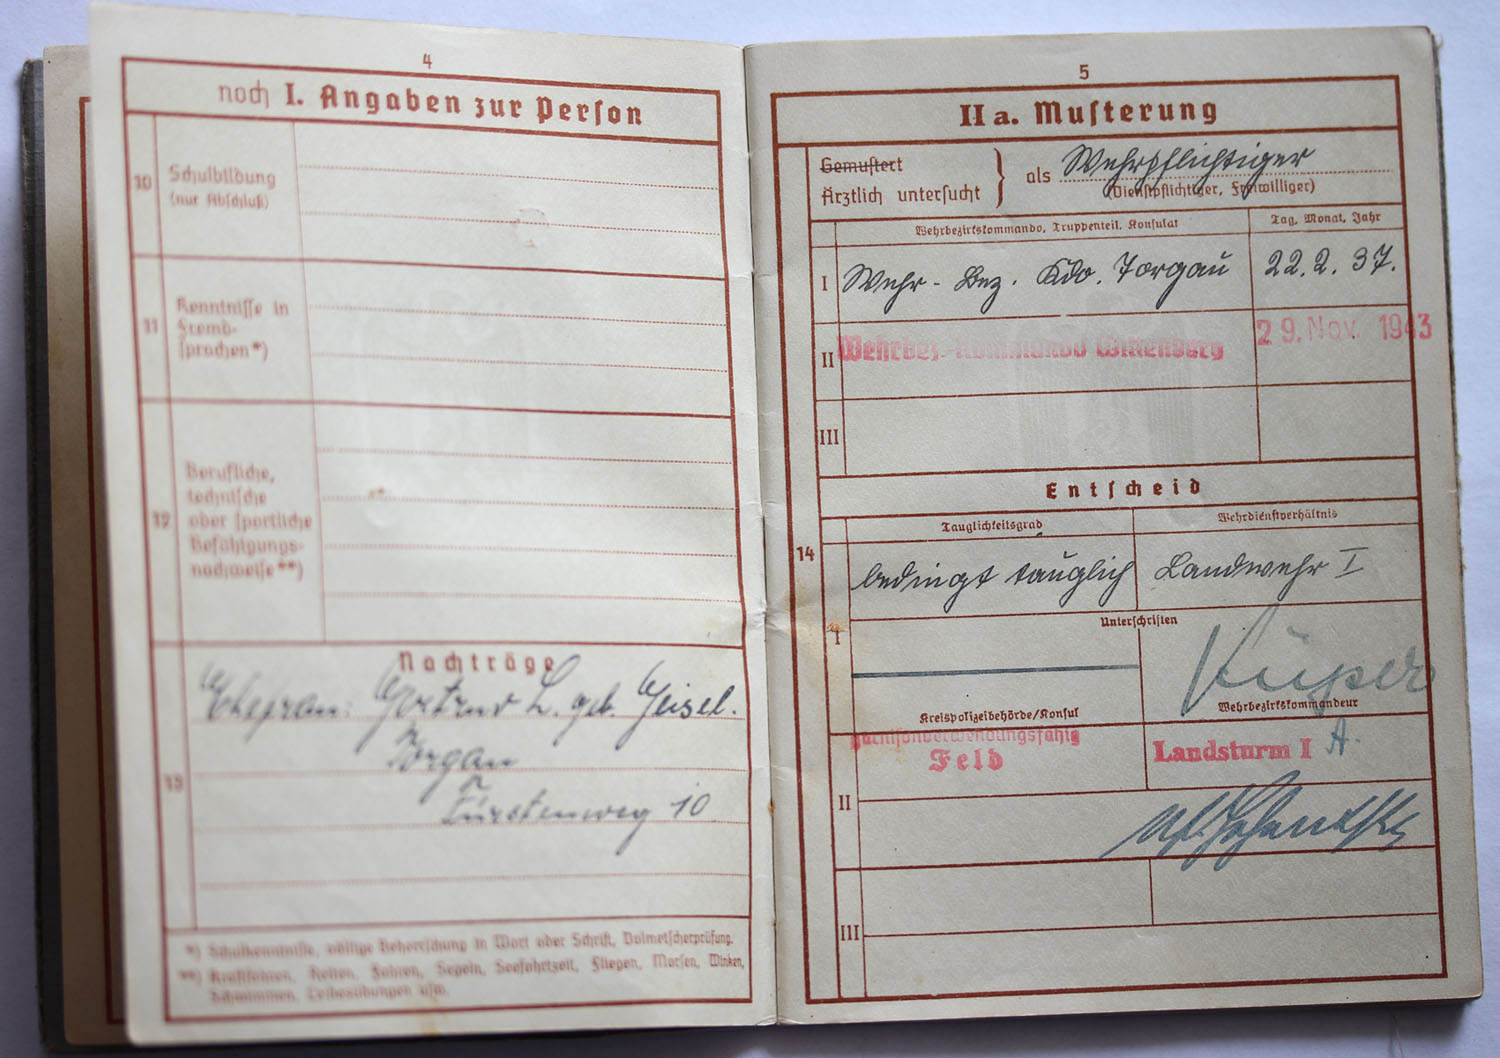 4
noch I. Angaben zur Person
10
Schulbildung
(nur Abschluß)
11
Kenntnisse in
Fremd-
sprachen*)
12
Berufliche,
technische
oder sportliche
Befähigungs-
nachweise**)
Nachträge
13
Ehefrau: Gertrud L. geb. Geisel.
Torgau
Fürstenweg 10
*) Schulkenntnisse, völlige Beherrschung in Wort oder Schrift, Dolmetscherprüfung.
**) Kraftfahren, Reiten, Fahren, Segeln, Seefahrtzeit, Fliegen, Morsen, Winken,
Schwimmen, Leibesübungen usw.
5
II a. Musterung
Gemustert
Ärztlich untersucht
als Wehrpflichtiger
(Dienstpflichtiger, Freiwilliger)
Wehrbezirkskommando, Truppenteil, Konsulat
Tag, Monat, Jahr
I Wehr-Bez. Kdo. Torgau 22.2.37.
II Wehrbez.-Kommando 29. Nov. 1943
III
Entscheid
14
Tauglichkeitsgrad
Wehrdienstverhältnis
I bedingt tauglich Landwehr I
Unterschriften
Küper
Kreispolizeibehörde/Konsul
Wehrbezirkskommandeur
II garnisonverwendungsfähig
Feld
Landsturm I A.
III